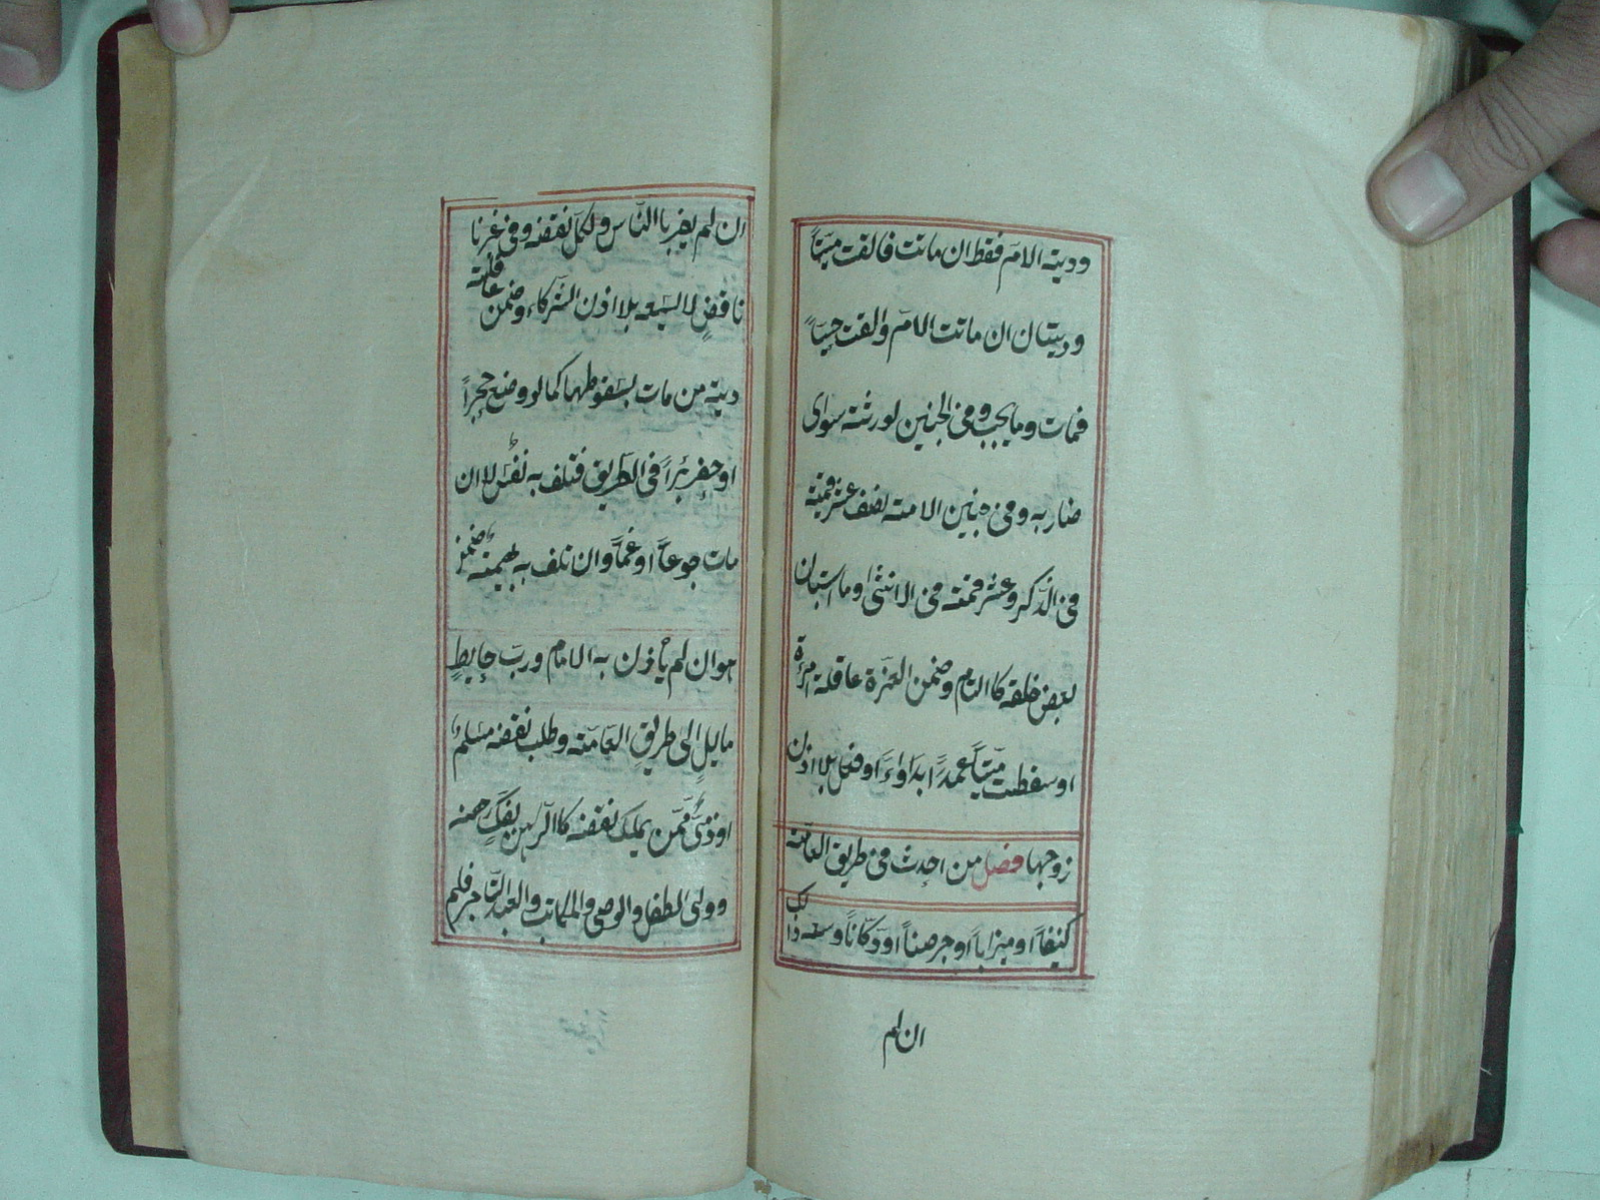 ودية الام فقط ان ماتت فالقت ميتاً
وديتان ان ماتت الامّ والقت حيّاً
فمات وما يجب فى الجنين لورثته سوى
ضاربه وفى جنين الامة نصف عشر قيمته
فى الذّكر وعشر قيمته فى الانثى وما استبان
بعض خلقه كالتام وضمن الغرّة عاقلة امرأة
اسقطت ميّتاً عمداً بدواء او فعل بلا اذن
زوجها فصل من احدث فى طريق العامّة
كنيفاً او ميزاباً او جرصناً او دكّاناً وسعه ذلك
ان لم
ان لم يضر بالنّاس ولكلّ نقضه وفى غير نا
نافذٍ لا يسعه بلا اذن الشركاء وضمن عاقلته
دية من مات بسقوطها كما لو وضع حجراً
او حفر بئراً فى الطريق فتلف به نفسٌ لا ان
مات جوعاً او غمّاً وان تلف به بهيمة ضمن
هو ان لم يأذن به الامام وربّ حايطٍ
مايلٍ الى طريق العامّة وطلب نقضه مسلمٌ
او ذمّىٌّ ممّن يملك نقضه كالرّاهن بفكّ رهنه
وولى الطفل والوصى والمكاتب والعبد التّاجر فلم